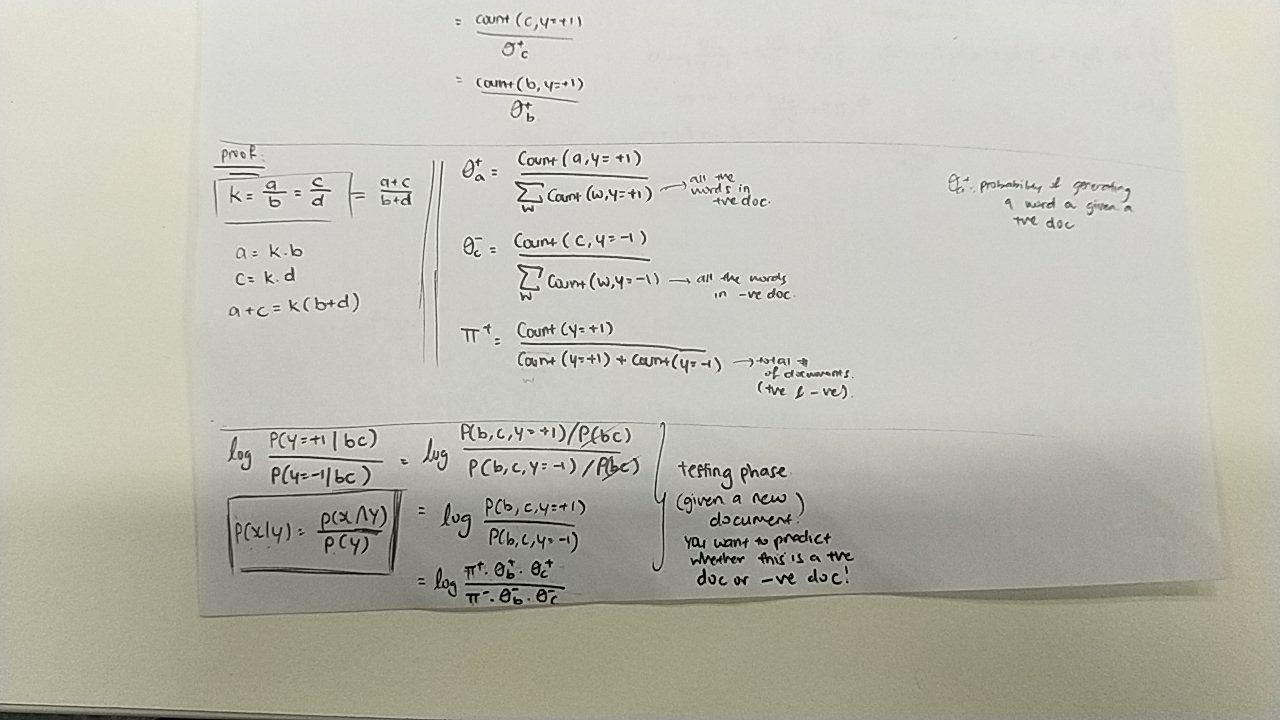 = count (c, y=+1)
θ⁺c
= count (b, y=+1)
θ⁺b
proof:
k = a/b = c/d = a+c/b+d
a = k.b
c = k.d
a+c = k(b+d)
θ⁺a = Count (a, y=+1)
∑w Count (w, y=+1) → all the words in +ve doc.
θ⁻c = Count (c, y=-1)
∑w Count (w, y=-1) → all the words in -ve doc.
π⁺ = Count (y=+1)
Count (y=+1) + Count (y=-1) → total # of documents. (+ve & -ve).
θ⁺a: probability of generating
a word a given a
+ve doc
log P(y=+1|bc) / P(y=-1|bc) = log P(b,c,y=+1)/P(bc) / P(b,c,y=-1)/P(bc)
P(x|y) = P(x∧y) / P(y)
= log P(b,c,y=+1) / P(b,c,y=-1)
= log π⁺.θ⁺b.θ⁺c / π⁻.θ⁻b.θ⁻c
testing phase.
(given a new)
document.
you want to predict
whether this is a +ve
doc or -ve doc!